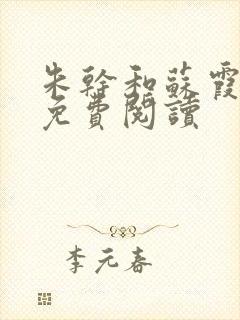 朱幹和蘇霞
免費閱讀
李元春